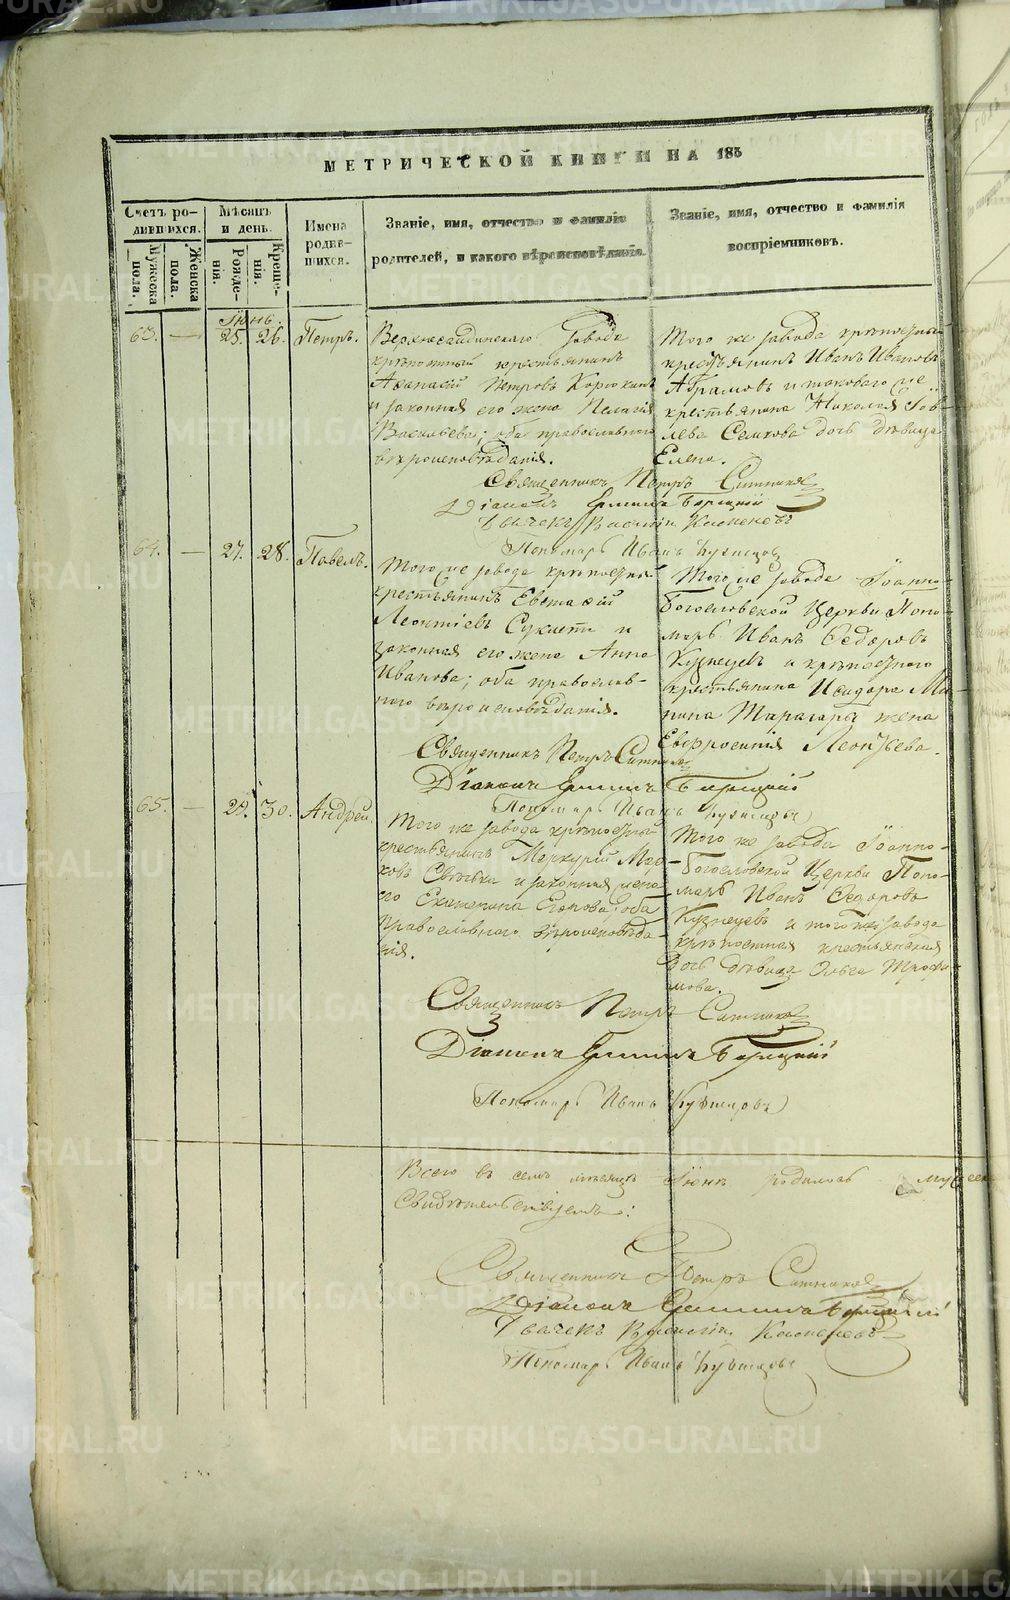 МЕТРИЧЕСКОЙ КНИГИ НА 185
Счетъ ро-
дившихся.
Мужеска пола.
Женска пола.
Мѣсяцъ
и день.
Рожде-
нія.
Креще-
нія.
Имена
родив-
шихся.
Званіе, имя, отчество и фамилія
родителей, и какого вѣроисповѣданія.
Званіе, имя, отчество и фамилія
воспріемниковъ.
Іюнь.
63. — 25. 26. Петръ.
Верхнесалдинскаго завода
крѣпостный крестьянинъ
Аѳанасій Петровъ
и законная его жена Пелагія
Васильева; оба православнаго
вѣроисповѣданія.
Того же завода крѣпостный
крестьянинъ Иванъ Ивановъ
Абрамовъ и таковаго же
крестьянина Николая
дочь дѣвица
Елена.
Священникъ Петръ Ситниковъ
Діаконъ
Дьячекъ Василій
Пономарь Иванъ Кузнецовъ
64. — 27. 28. Павелъ.
Того же завода крѣпостный
крестьянинъ Евстафій
Леонтіевъ и
законная его жена Анна
Иванова; оба православ-
наго вѣроисповѣданія.
Того же завода Іоанно-
Богословской Церкви Поно-
марь Иванъ Ѳедоровъ
Кузнецовъ и крѣпостнаго
крестьянина Исидора
жена
Евфросинія Леонтьева.
Священникъ Петръ Ситниковъ
Діаконъ
Пономарь Иванъ Кузнецовъ
65. — 29. 30. Андрей.
Того же завода крѣпостный
крестьянинъ Меркурій Мар-
ковъ и законная жена
его Екатерина Егорова; оба
православнаго вѣроисповѣда-
нія.
Того же завода Іоанно-
Богословской Церкви Поно-
марь Иванъ Ѳедоровъ
Кузнецовъ и того же завода
крѣпостная крестьянская
дочь дѣвица Ольга Трофи-
мова.
Священникъ Петръ Ситниковъ
Діаконъ
Пономарь Иванъ Кузнецовъ
Всего въ семъ мѣсяцѣ Іюнѣ родилось
Свидѣтельствуемъ:
Священникъ Петръ Ситниковъ
Діаконъ
Дьячекъ Василій
Пономарь Иванъ Кузнецовъ
METRIKI.GASO-URAL.RU